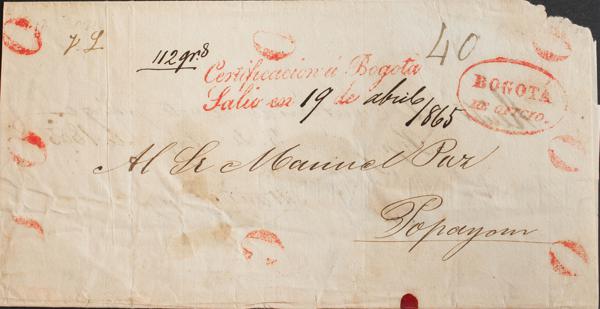 V. L
112 gr.s
40
Certificacion á Bogotá
Salio en 19 de abril 1865
BOGOTÁ
DE OFICIO.
Al Sr Manuel Paz
Popayan
C